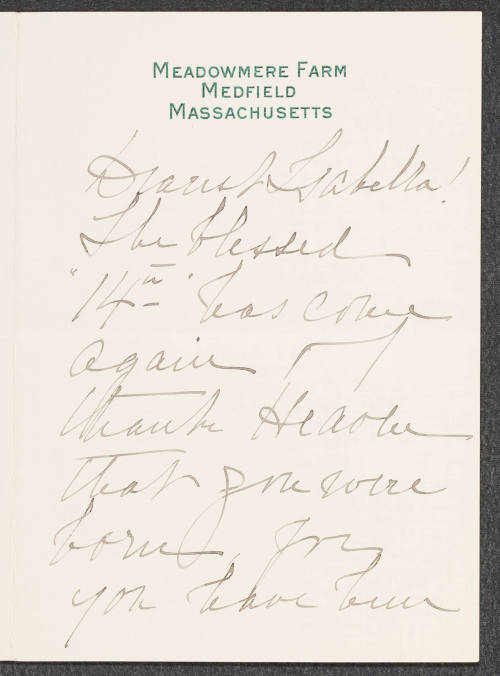 MEADOWMERE FARM
MEDFIELD
MASSACHUSETTS
Dearest Isabella!
The blessed
"14th" has come
again, I
thank Heaven
that you were
born, for
you have been